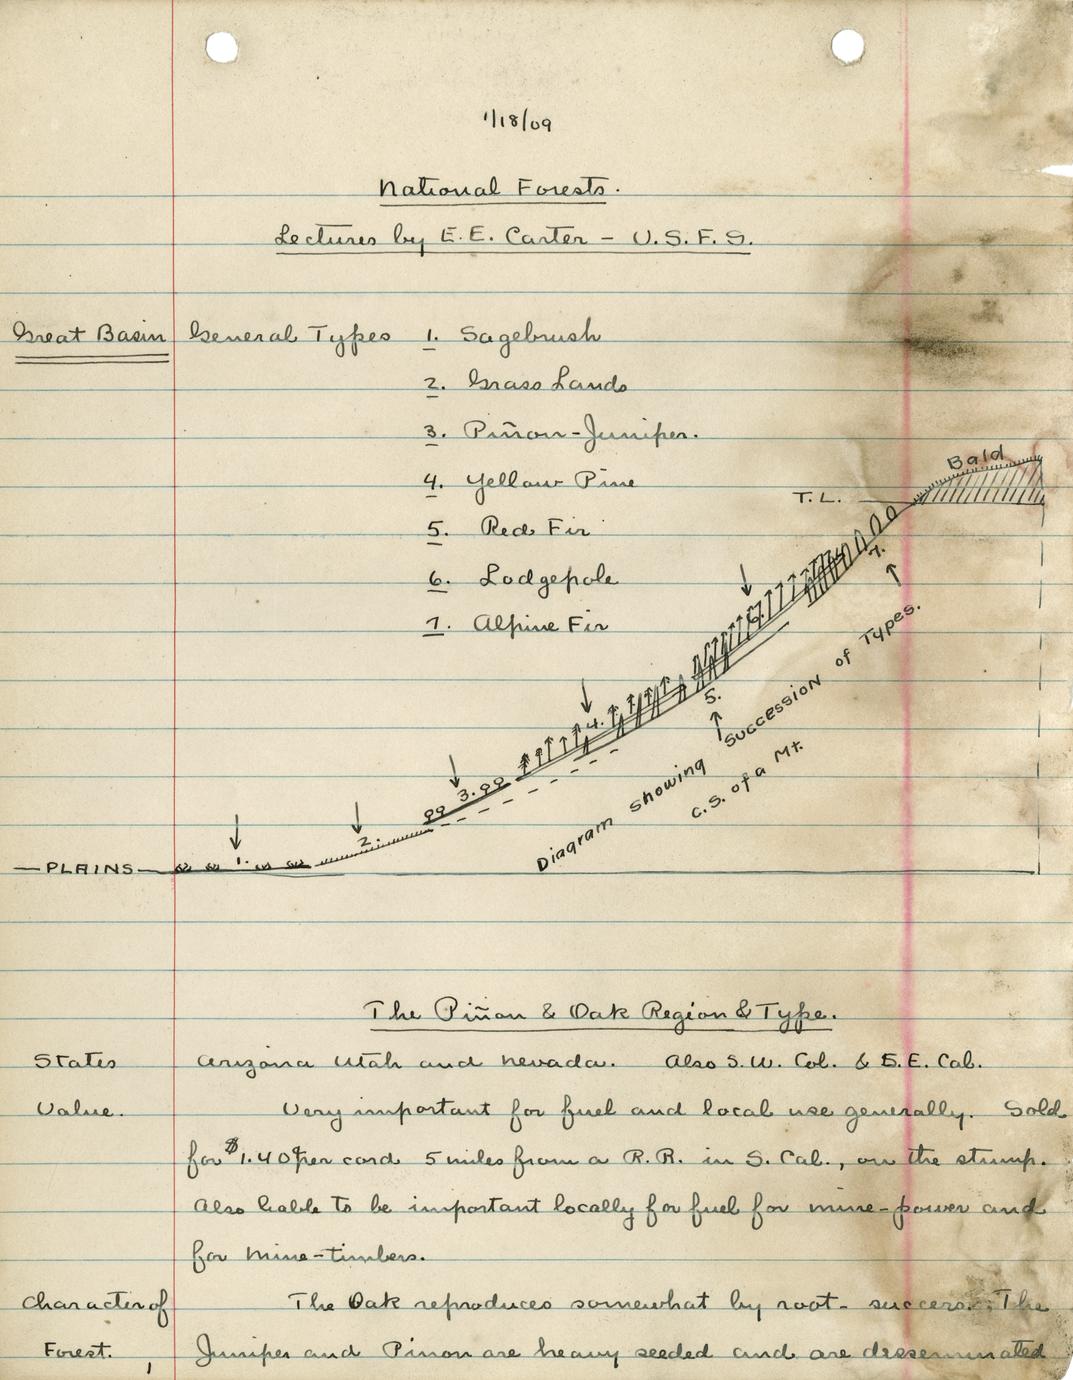 1/18/09
National Forests.
Lectures by E.E. Carter - U.S.F.S.
Great Basin General Types 1. Sagebrush
2. Grass Lands
3. Piñon-Juniper.
4. Yellow Pine
5. Red Fir
6. Lodgepole
7. Alpine Fir
Bald
T.L.
7.
5.
4.
3.
2.
1.
PLAINS
Diagram showing Succession of Types.
C.S. of a Mt.
The Piñon & Oak Region & Type.
States Arizona Utah and Nevada. Also S.W. Col. & S.E. Cal.
Value. Very important for fuel and local use generally. Sold
for $1.40 per cord 5 miles from a R.R. in S. Cal., on the stump.
Also liable to be important locally for fuel for mine-power and
for mine-timbers.
Character of The Oak reproduces somewhat by root- The
Forest. Juniper and Pinon are heavy seeded and are disseminated